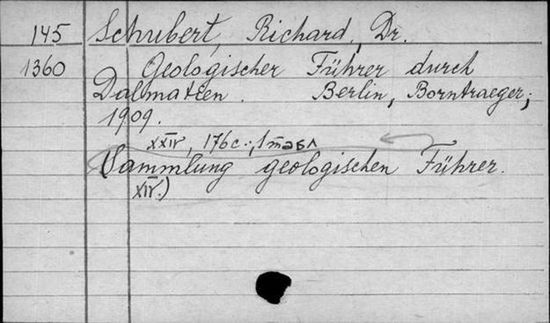 145 Schubert, Richard, Dr.
1360 Geologischer Führer durch
Dalmatien. Berlin, Borntraeger,
1909.
XXIV, 176 c., 1 табл
(Sammlung geologischen Führer.
XIV.)